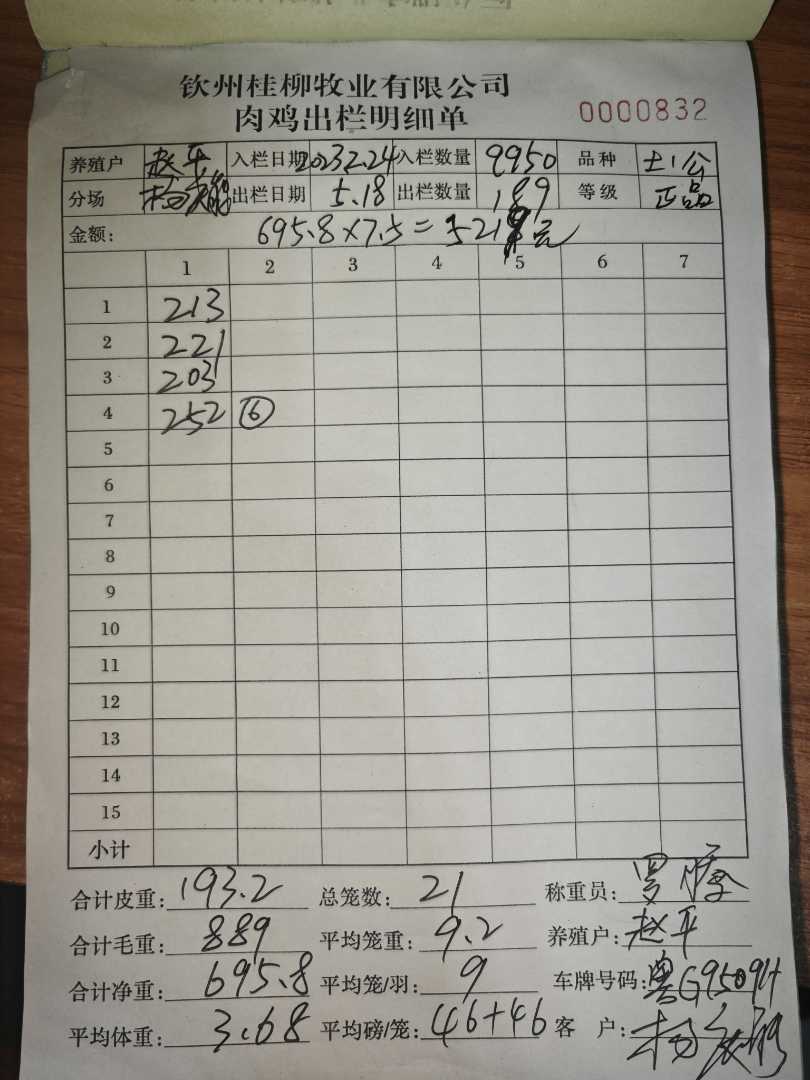 钦州桂柳牧业有限公司
肉鸡出栏明细单 0000832
养殖户 赵平 入栏日期 2023.2.24 入栏数量 9950 品种 土1公
分场 杨 出栏日期 5.18 出栏数量 189 等级 正品
金额: 695.8×7.5=521 元
1 2 3 4 5 6 7
1 213
2 221
3 203
4 252 ⑥
5
6
7
8
9
10
11
12
13
14
15
小计
合计皮重: 193.2 总笼数: 21 称重员: 罗
合计毛重: 889 平均笼重: 9.2 养殖户: 赵平
合计净重: 695.8 平均笼/羽: 9 车牌号码: 粤G95094
平均体重: 3.68 平均磅/笼: 46+46 客户: 杨